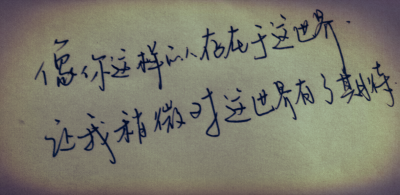 像你这样的人存在于这世界.
让我稍微对这世界有了期待.